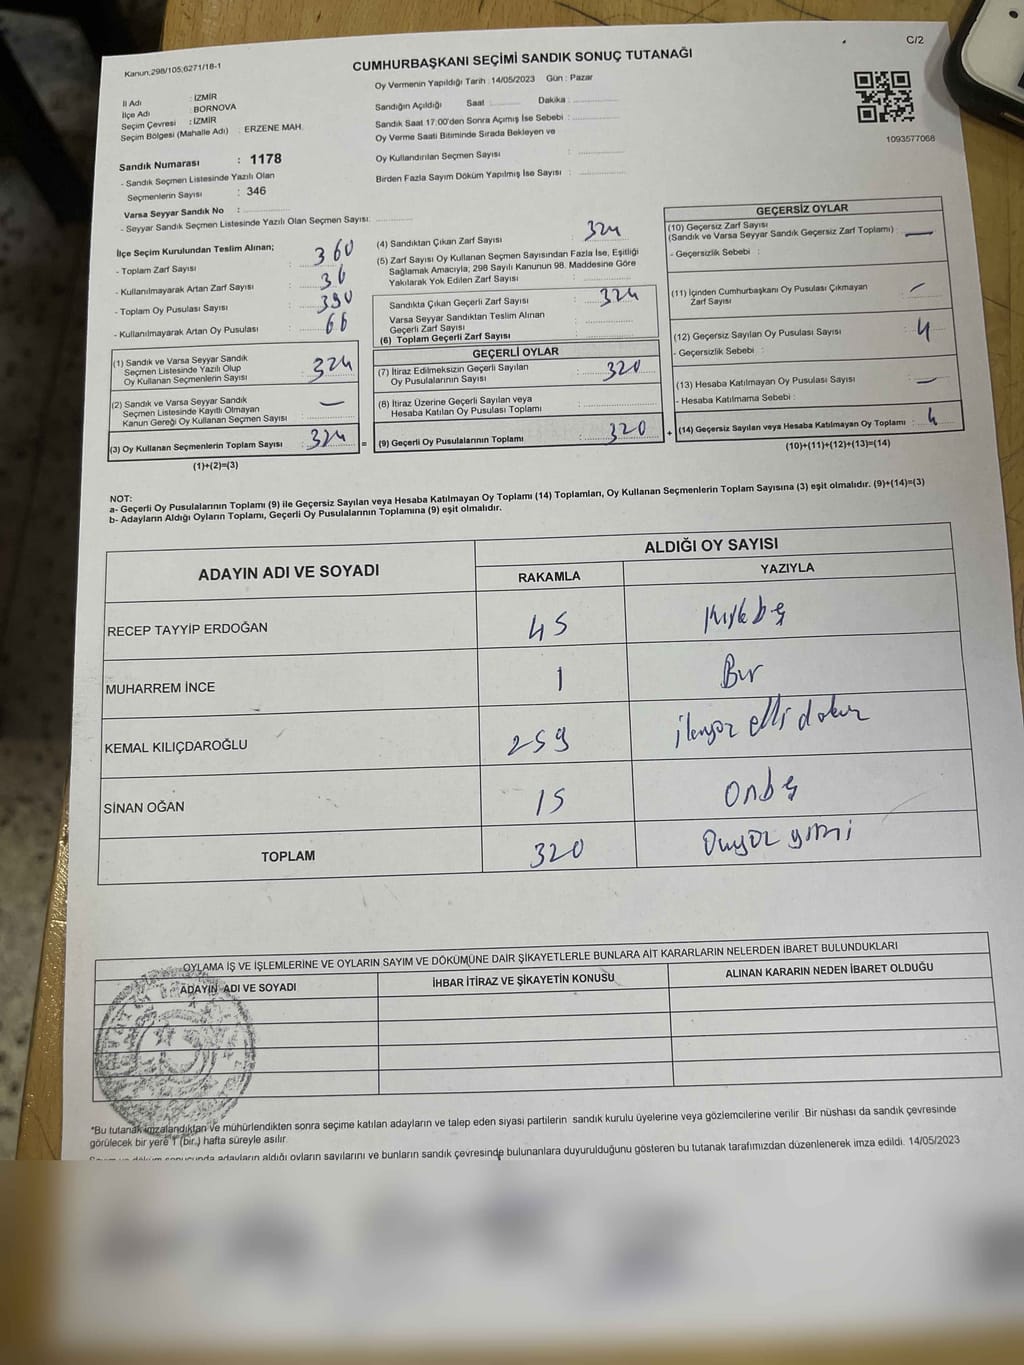 C/2
Kanun:298/105;6271/18-1
CUMHURBAŞKANI SEÇİMİ SANDIK SONUÇ TUTANAĞI
Oy Vermenin Yapıldığı Tarih : 14/05/2023 Gün : Pazar
İl Adı : İZMİR
İlçe Adı : BORNOVA
Seçim Çevresi : İZMİR
Seçim Bölgesi (Mahalle Adı) : ERZENE MAH.
Sandık Numarası : 1178
- Sandık Seçmen Listesinde Yazılı Olan
Seçmenlerin Sayısı : 346
Varsa Seyyar Sandık No :
- Seyyar Sandık Seçmen Listesinde Yazılı Olan Seçmen Sayısı:
Sandığın Açıldığı Saat : Dakika :
Sandık Saat 17:00'den Sonra Açımış İse Sebebi :
Oy Verme Saati Bitiminde Sırada Bekleyen ve
Oy Kullandırılan Seçmen Sayısı :
Birden Fazla Sayım Döküm Yapılmış İse Sayısı :
1093577068
İlçe Seçim Kurulundan Teslim Alınan;
- Toplam Zarf Sayısı : 360
- Kullanılmayarak Artan Zarf Sayısı : 36
- Toplam Oy Pusulası Sayısı : 390
- Kullanılmayarak Artan Oy Pusulası : 66
(1) Sandık ve Varsa Seyyar Sandık
Seçmen Listesinde Yazılı Olup
Oy Kullanan Seçmenlerin Sayısı : 324
(2) Sandık ve Varsa Seyyar Sandık
Seçmen Listesinde Kayıtlı Olmayan
Kanun Gereği Oy Kullanan Seçmen Sayısı : —
(3) Oy Kullanan Seçmenlerin Toplam Sayısı : 324 =
(1)+(2)=(3)
(4) Sandıktan Çıkan Zarf Sayısı : 324
(5) Zarf Sayısı Oy Kullanan Seçmen Sayısından Fazla İse, Eşitliği
Sağlamak Amacıyla; 298 Sayılı Kanunun 98. Maddesine Göre
Yakılarak Yok Edilen Zarf Sayısı :
Sandıkta Çıkan Geçerli Zarf Sayısı : 324
Varsa Seyyar Sandıktan Teslim Alınan
Geçerli Zarf Sayısı :
(6) Toplam Geçerli Zarf Sayısı :
GEÇERLİ OYLAR
(7) İtiraz Edilmeksizin Geçerli Sayılan
Oy Pusulalarının Sayısı : 320
(8) İtiraz Üzerine Geçerli Sayılan veya
Hesaba Katılan Oy Pusulası Toplamı :
(9) Geçerli Oy Pusulalarının Toplamı : 320 +
GEÇERSİZ OYLAR
(10) Geçersiz Zarf Sayısı
(Sandık ve Varsa Seyyar Sandık Geçersiz Zarf Toplamı) : —
- Geçersizlik Sebebi :
(11) İçinden Cumhurbaşkanı Oy Pusulası Çıkmayan
Zarf Sayısı : —
(12) Geçersiz Sayılan Oy Pusulası Sayısı : 4
- Geçersizlik Sebebi :
(13) Hesaba Katılmayan Oy Pusulası Sayısı : —
- Hesaba Katılmama Sebebi :
(14) Geçersiz Sayılan veya Hesaba Katılmayan Oy Toplamı : 4
(10)+(11)+(12)+(13)=(14)
NOT:
a- Geçerli Oy Pusulalarının Toplamı (9) ile Geçersiz Sayılan veya Hesaba Katılmayan Oy Toplamı (14) Toplamları, Oy Kullanan Seçmenlerin Toplam Sayısına (3) eşit olmalıdır. (9)+(14)=(3)
b- Adayların Aldığı Oyların Toplamı, Geçerli Oy Pusulalarının Toplamına (9) eşit olmalıdır.
ADAYIN ADI VE SOYADI
ALDIĞI OY SAYISI
RAKAMLA YAZIYLA
RECEP TAYYİP ERDOĞAN 45 Kırkbeş
MUHARREM İNCE 1 Bir
KEMAL KILIÇDAROĞLU 259 ikiyüz elli dokuz
SİNAN OĞAN 15 Onbeş
TOPLAM 320 Üçyüz yirmi
OYLAMA İŞ VE İŞLEMLERİNE VE OYLARIN SAYIM VE DÖKÜMÜNE DAİR ŞİKAYETLERLE BUNLARA AİT KARARLARIN NELERDEN İBARET BULUNDUKLARI
ADAYIN ADI VE SOYADI İHBAR İTİRAZ VE ŞİKAYETİN KONUSU ALINAN KARARIN NEDEN İBARET OLDUĞU
*Bu tutanak imzalandıktan ve mühürlendikten sonra seçime katılan adayların ve talep eden siyasi partilerin sandık kurulu üyelerine veya gözlemcilerine verilir. Bir nüshası da sandık çevresinde
görülecek bir yere 1 (bir.) hafta süreyle asılır.
Sayım ve döküm sonucunda adayların aldığı oyların sayılarını ve bunların sandık çevresinde bulunanlara duyurulduğunu gösteren bu tutanak tarafımızdan düzenlenerek imza edildi. 14/05/2023